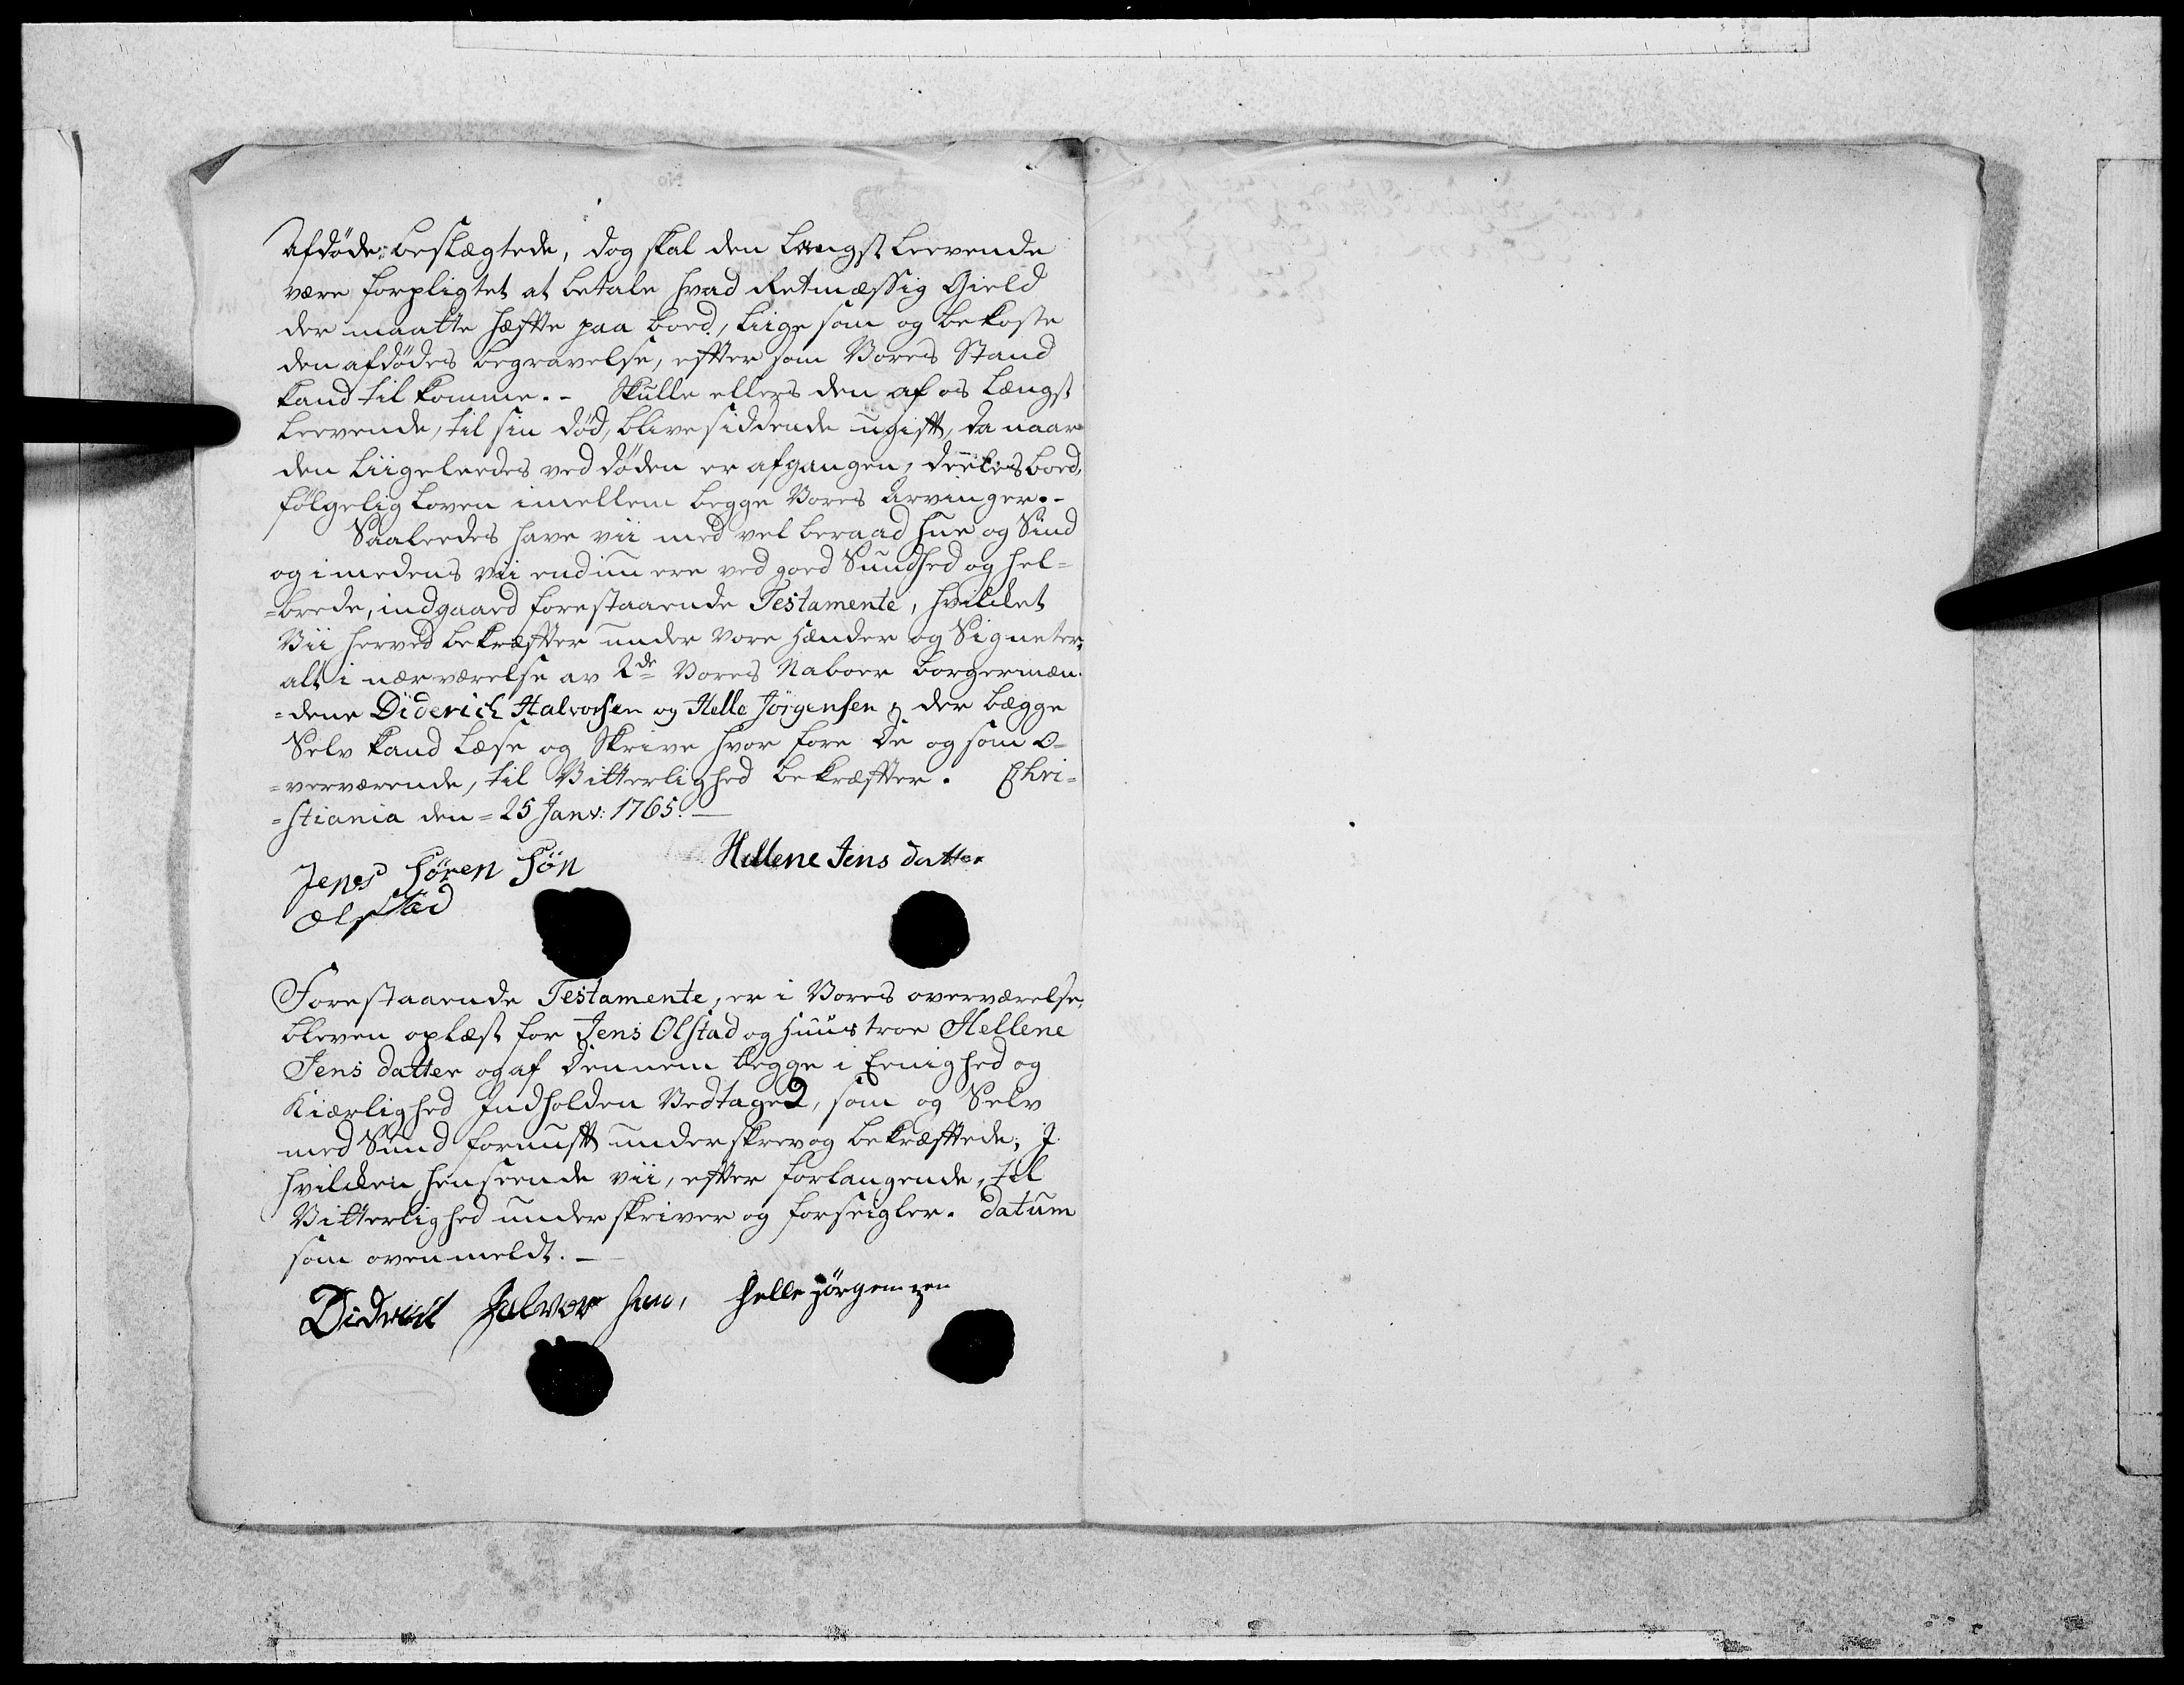 Afdøde: beslægtede, dog skal den Længst leevende
være forpligtet at betale hvad Retmæssig Gield
der maatte hæfte paa boed, liige som og bekoste
den afdødes begravelse, efter som Vores Stand
kand til komme. - Skulle ellers den af os Længst
Leevende, til sin død, blive siddende ugift, da naar
den liigeleedes ved døden er afgangen, deeles boed,
følgelig loven imellem begge Vores Arvinger. -
Saaleedes have vii med vel beraad hue og Sind
og imedens vii endnu ere ved goed Sundhed og hel=
=brede, indgaaed forestaaende Testamente, hvilcket
Vii herved bekræfter under vore hænder og Signeter,
alt i nærværelse av 2de Vores Naboer borgermæn=
=dene Diderich Halvorsen og Helle Jörgensen, der begge
Selv kand læse og Skrive hvor fore de og som o=
=verværende, til Vitterlighed bekræfter. Chri=
=stiania den = 25 Janv: 1765. -
Jens Sören Sön
Ælstad
Hellene Jens datter
Forestaaende Testamente, er i Vores overværelse,
bleven oplæst for Jens Olstad og Huustroe Hellene
Jens datter og af dennem begge i Eenighed og
Kiærlighed Indholden Vedtaged, som og Selv
med Sund fornuft underskrev og bekræftede, I
hvilcken henseende vii, efter forlangende, til
Vitterlighed underskriver og forseigler. datum
som ovenmeldt. -
Diderich Halvor sen,
Helle Jörgensen